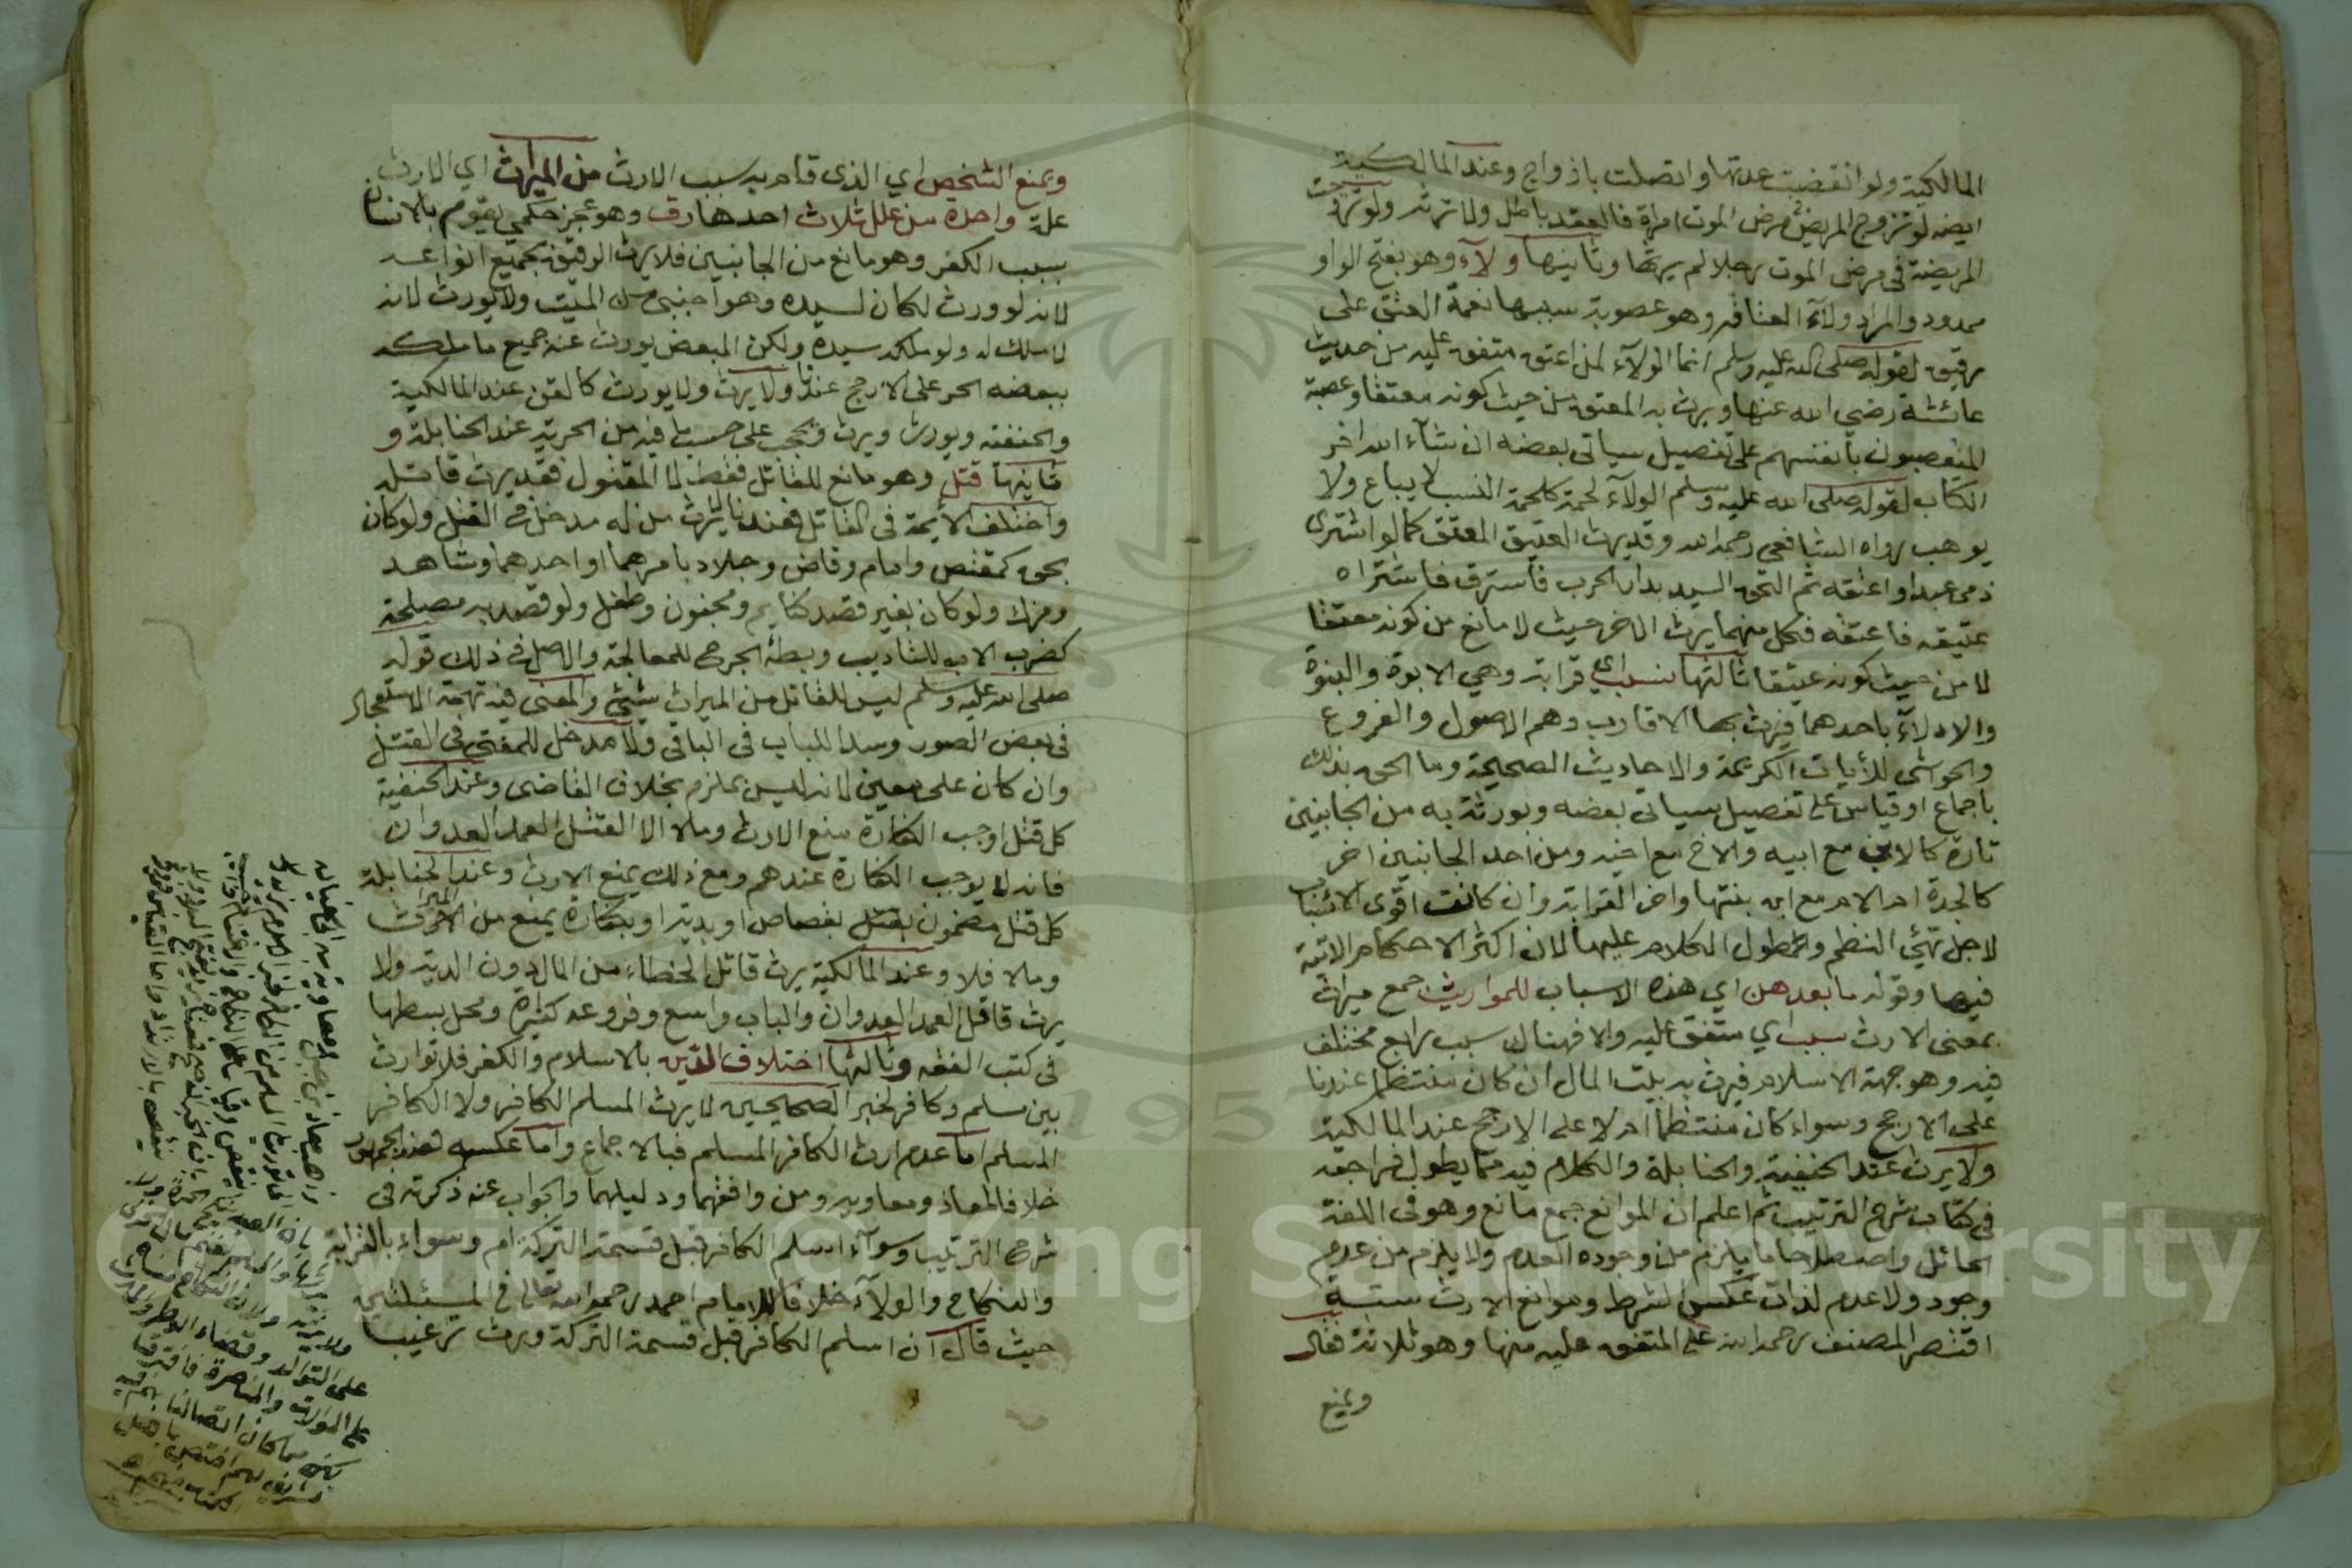 المالكية ولو انقضت عدتها واتصلت بازواج وعند المالكية
ايضا لو تزوج المريض مرض الموت امراة فالعقد باطل ولا ترثه ولو تزوجت
المريضة في مرض الموت رجلا لم يرثها وثانيها ولآء وهو بفتح الواو
ممدود والمراد ولآء العتاقه وهو عصوبة سببها نعمة العتق على
رقيق لقوله صلى الله عليه وسلم انما الولآء لمن اعتق متفق عليه من حديث
عائشة رضي الله عنها ويرث به المعتق من حيث كونه معتقا وعصبة
المتعصبون بأنفسهم على تفصيل سياتي بعضه ان شآء الله اخر
الكتاب لقوله صلى الله عليه وسلم الولآء لحمة كلحمة النسب لا يباع ولا
يوهب رواه الشافعي رحمه الله وقد يرث العتيق المعتق كما لو اشترى
ذمي عبدا واعتقه ثم التحق السيد بدار الحرب فاسترق فاشتراه
عتيقه فاعتقه فكل منهما يرث الاخر حيث لا مانع من كونه معتقا
لا من حيث كونه عتيقا ثالثها نسب اي قرابة وهي الابوة والبنوة
والادلآء باحدهما فيرث بها الاقارب وهم الاصول والفروع
والحواشي للأيات الكريمة والاحاديث الصحيحة وما الحق بذلك
باجماع او قياس على تفصيل سياتي بعضه ويورثة به من الجانبين
تارة كالابن مع ابيه والاخ مع اخيه ومن احد الجانبين اخرى
كالجدة ام الام مع ابن بنتها واخر القرابة وان كانت اقوى الاسباب
لاجل تهيئ النظم ولطول الكلام عليها لان اكثر الاحكام الاتية
فيها وقوله ما بعد هن اي هذه الاسباب للمواريث جمع ميراث
بمعنى الارث سبب اي متفق عليه والا فهناك سبب رابع مختلف
فيه وهو جهة الاسلام فيرث به بيت المال ان كان منتظما عندنا
على الارجح وسواء كان منتظما ام لا على الارجح عند المالكية
ولا يرث عند الحنفية والحنابلة والكلام فيه مما يطول فراجعه
في كتاب شرح الترتيب ثم اعلم ان الموانع جمع مانع وهو في اللغة
الحائل واصطلاحا ما يلزم من وجوده العدم ولا يلزم من عدمه
وجود ولا عدم لذاته عكس الشرط وموانع الارث ستة
اقتصر المصنف رحمه الله على المتفق عليه منها وهو ثلاثة فقال
ويمنع
ويمنع الشخص اي الذي قام به سبب الارث من الميراث اي الارث
علة واحدة من علل ثلاث احدها رق وهو عجز حكمي يقوم بالانسان
بسبب الكفر وهو مانع من الجانبين فلا يرث الرقيق بجميع انواعه
لانه لو ورث لكان لسيده وهو اجنبي من الميت ولا يورث لانه
لا ملك له ولو ملكه سيده ولكن المبعض يورث عنه جميع ما ملكه
ببعضه الحر على الارجح عندنا ولا يرث ولا يورث كالقن عند المالكية
والحنفية ويورث ويرث ويحجب على حسب ما فيه من الحرية عند الحنابلة و
ثانيها قتل وهو مانع للقاتل فقط لا المقتول فقد يرث قاتله
واختلف الأيمة في القاتل فعندنا لا يرث من له مدخل في القتل ولو كان
بحق كمقتص وامام وقاض وجلاد بامرهما او احدهما وشاهد
ومزك ولو كان بغير قصد كنايم ومجنون وطفل ولو قصد به مصلحة
كضرب الاب للتاديب وبطه الجرح للمعالجة والاصل في ذلك قوله
صلى الله عليه وسلم ليس للقاتل من الميراث شيئ والمعنى فيه تهمة الاستعجال
في بعض الصور وسدا للباب في الباقي ولا مدخل للمفتي في القتل
وان كان على معين لانه ليس بملزم بخلاف القاضي وعند الحنفية
كل قتل اوجب الكفارة منع الارث وما لا الا القتل العمد العدوان
فانه لا يوجب الكفارة عندهم ومع ذلك يمنع الارث وعند الحنابلة
كل قتل مضمون بقصاص او بدية او بكفارة يمنع من الميراث
وما لا فلا وعند المالكية يرث قاتل الخطاء من المال دون الدية ولا
يرث قاتل العمد العدوان والباب واسع وفروعه كثيرة ومحل بسطها
في كتب الفقه وثالثها اختلاف الدين بالاسلام والكفر فلا توارث
بين مسلم وكافر لخبر الصحيحين لا يرث المسلم الكافر ولا الكافر
المسلم اما عدم ارث الكافر المسلم فبالاجماع واما عكسه فعند الجمهور
خلافا لمعاذ ومعاويه ومن وافقهما ودليلهما والجواب عنه ذكرته في
شرح الترتيب وسوآء اسلم الكافر قبل قسمة التركة ام وسواء بالقرابة
والنكاح والولآء خلافا للامام احمد رحمه الله تعالى في المسئلتين
حيث قال ان اسلم الكافر قبل قسمة التركة ورث ترغيبا